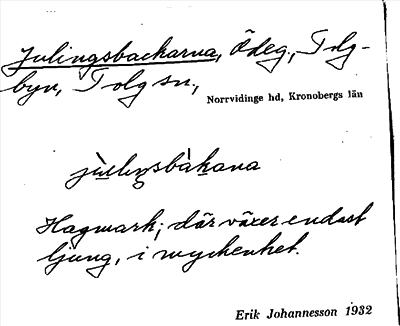 Julingsbackarna, Ödeg., Tolg-
byn, Tolg sn.,
Norrvidinge hd, Kronobergs län
jùli̯ŋsbàkana
Hagmark; där växer endast
ljung, i myckenhet.
Erik Johannesson 1932